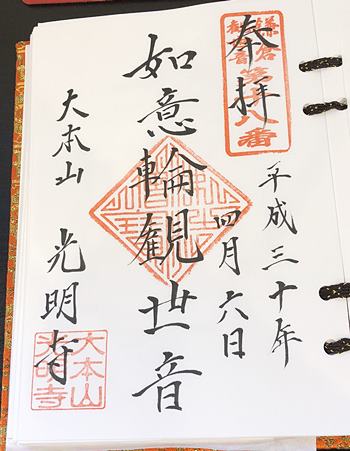 奉拝
鎌倉
第十八番
平成三十年
四月六日
如意輪観世音
大本山 光明寺
大本山
光明寺